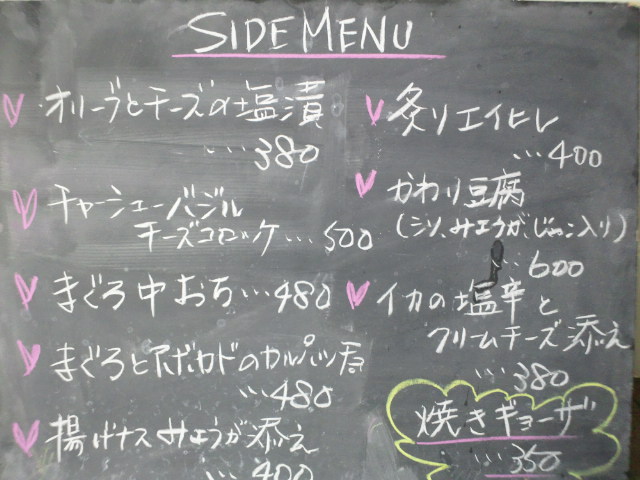 SIDE MENU
オリーブとチーズの塩漬
…380
チャーシューバジル
チーズコロッケ…500
まぐろ中おち…480
まぐろとアボカドのカルパッチョ
…480
揚げナスみょうが添え
…400
炙りエイヒレ
…400
かわり豆腐
(シソ、みょうが、じゃこ入り)
…600
イカの塩辛と
クリームチーズ添え
…380
焼きギョーザ
…350